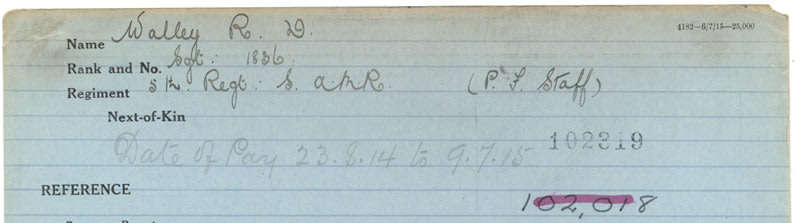 4182—6/7/15—25,000
Name Walley R. D.
Rank and No. Sgt: 1836.
Regiment 5th. Regt: S. A M R. (P. F. Staff)
Next-of-Kin
102319
Date of Pay 23.8.14 to 9.7.15
REFERENCE
102,018